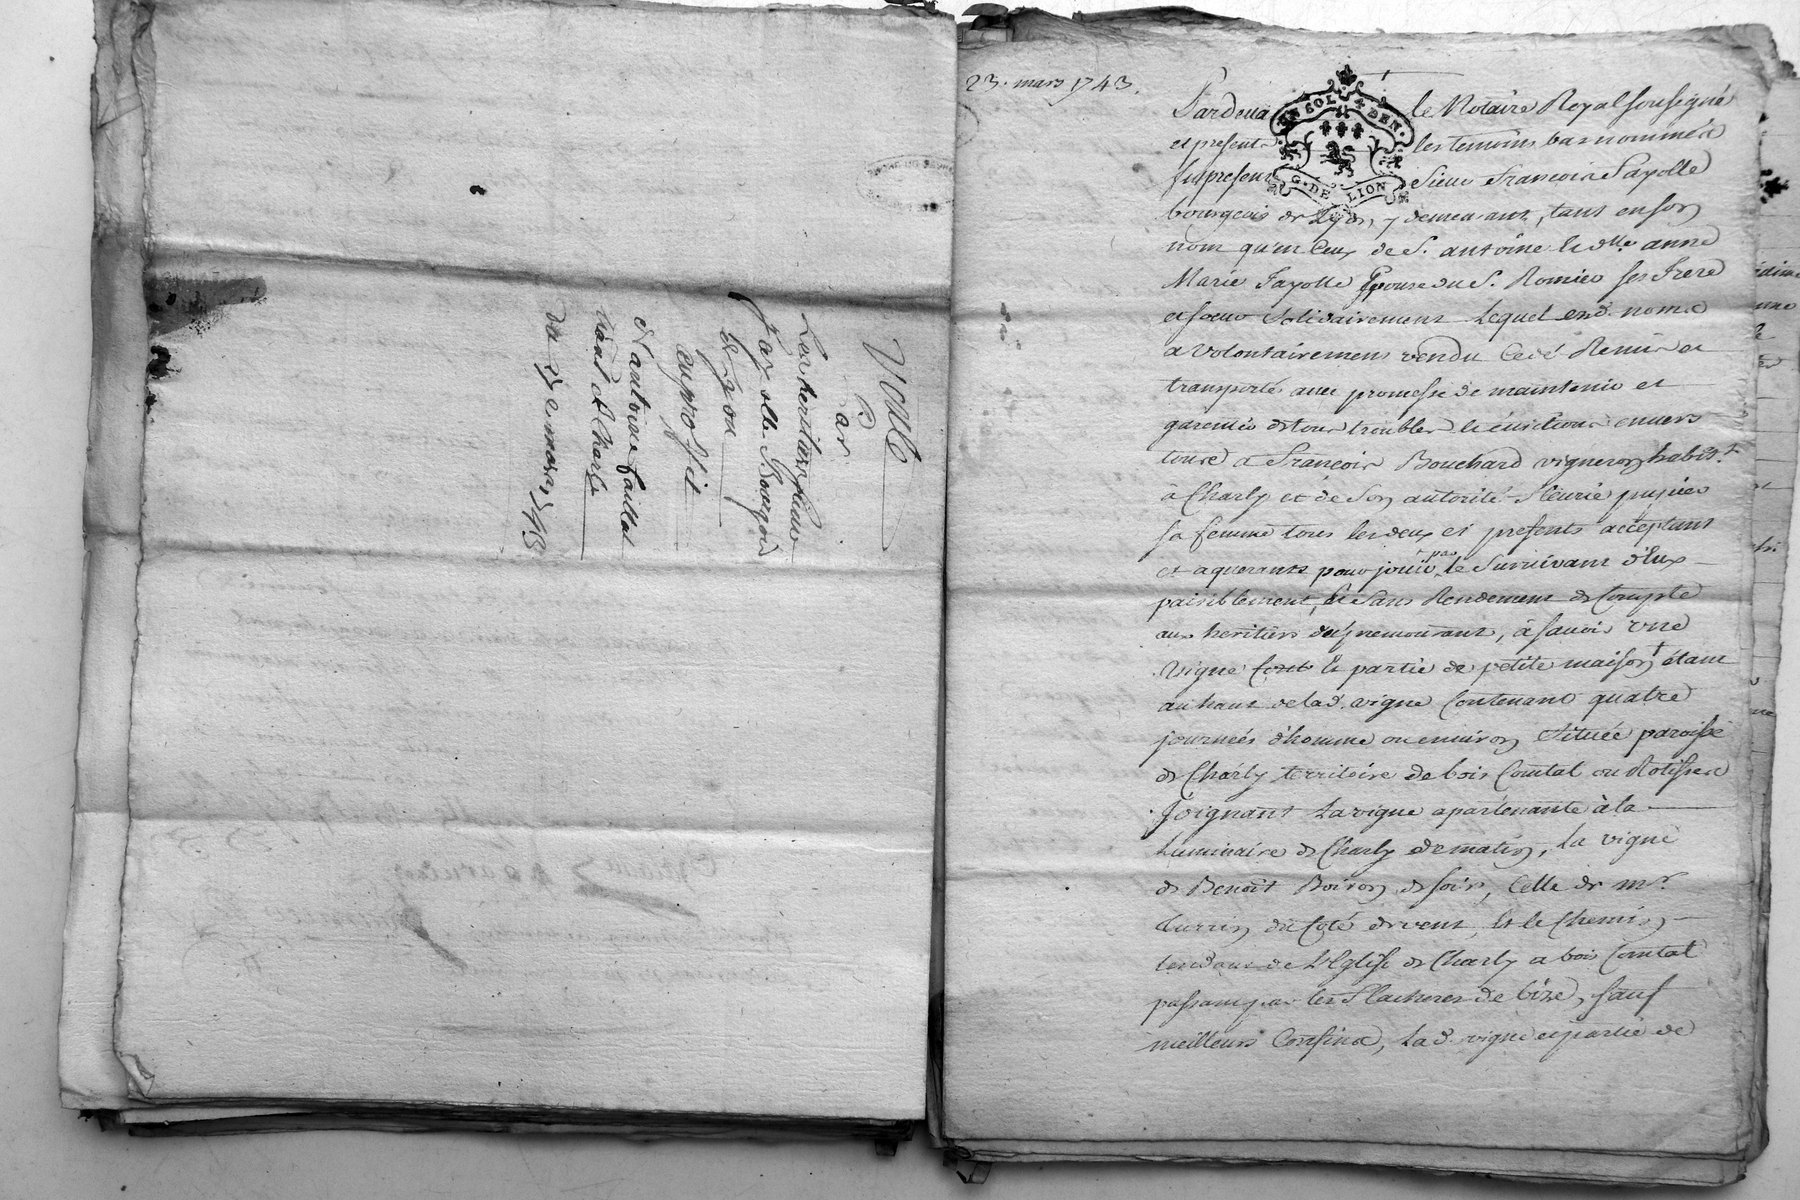 Vente
Par
Les heritiers sieur
Fayolle Bourgois
de Lyon
au profit
d'antoine
de Charly
du 23e mars 1743
23. mars 1743.
UN SOL 4 DEN.
G. DE LION
Pardeva le Notaire Royal sousigné
et presents les temoins bas nommés
fut present Sieur François Fayolle
bourgeois de Lyon, y demeurant, tant en son
nom qu'en Ceux de S. antoine et dlle anne
Marie Fayolle Epouse du S. Romieu ses frere
et soeur solidairement Lequel esd. noms
a volontairement vendu Cedé Remis et
transporté avec promesse de maintenir et
garentir de tous troubles et évictions envers
tous a François Bouchard vigneron habit.t
à Charly et de Son autorité Fleurie pupier
sa femme tous les deux ici presents acceptant
et aquerants pour jouir par le Survivant d'Eux
paisiblement, et Sans Rendement de Compte
aux heritiers du premourant, à savoir une
vigne et partie de petite maison étant
au haut de lad. vigne Contenant quatre
journées d'homme ou environ Située paroisse
de Charly territoire de bois Comtal ou Rotissere
Joignant La vigne apartenante à la
Luminaire de Charly de matin, la vigne
de Benoit Boiron de soir, Celle de mr.
du Coté de vent, et le Chemin
tendant de L'Eglise de Charly a bois Comtal
passant par les Flacheres de bize, sauf
meilleurs Confins, Lad. vigne et partie de